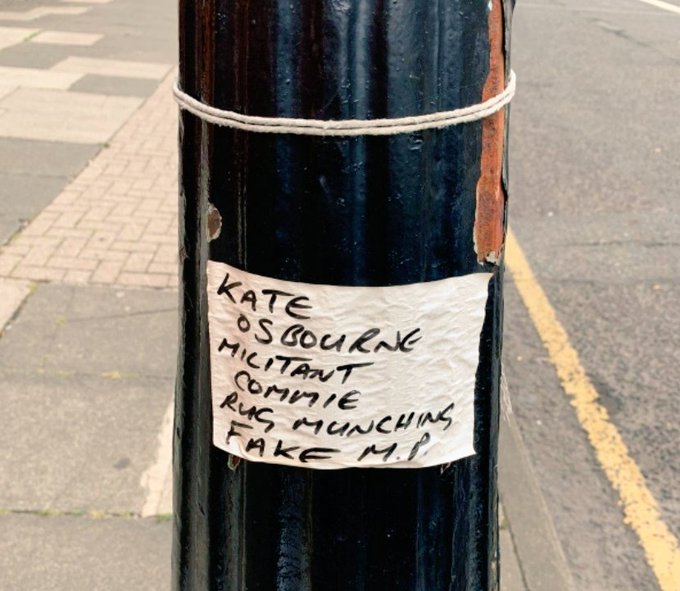 KATE
OSBOURNE
MILITANT
COMMIE
RUG MUNCHING
FAKE M.P.